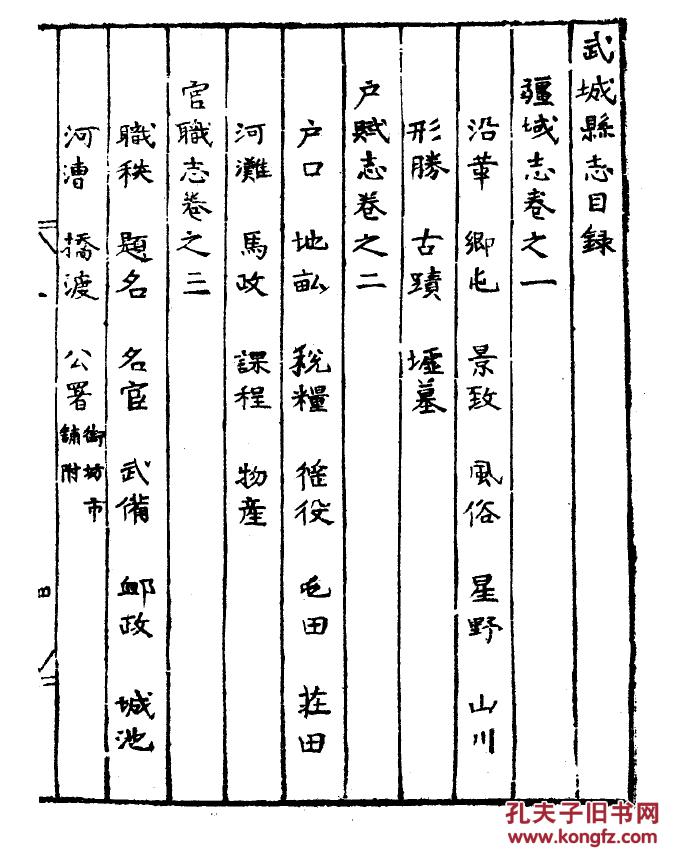 武城縣志目録
疆域志卷之一
沿革 鄉屯 景致 風俗 星野 山川
形勝 古蹟 墟墓
户賦志卷之二
户口 地畝 税糧 徭役 屯田 莊田
河灘 馬政 課程 物産
官職志卷之三
職秩 題名 名宦 武備 郵政 城池
河漕 橋渡 公署 街坊市舖附
孔夫子旧书网
www.kongfz.com